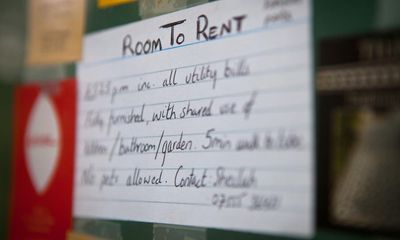 ROOM TO RENT
p.m. inc. all utility bills
Fully furnished, with shared use of
kitchen/bathroom/garden. 5min walk to
No pets allowed. Contact
07555